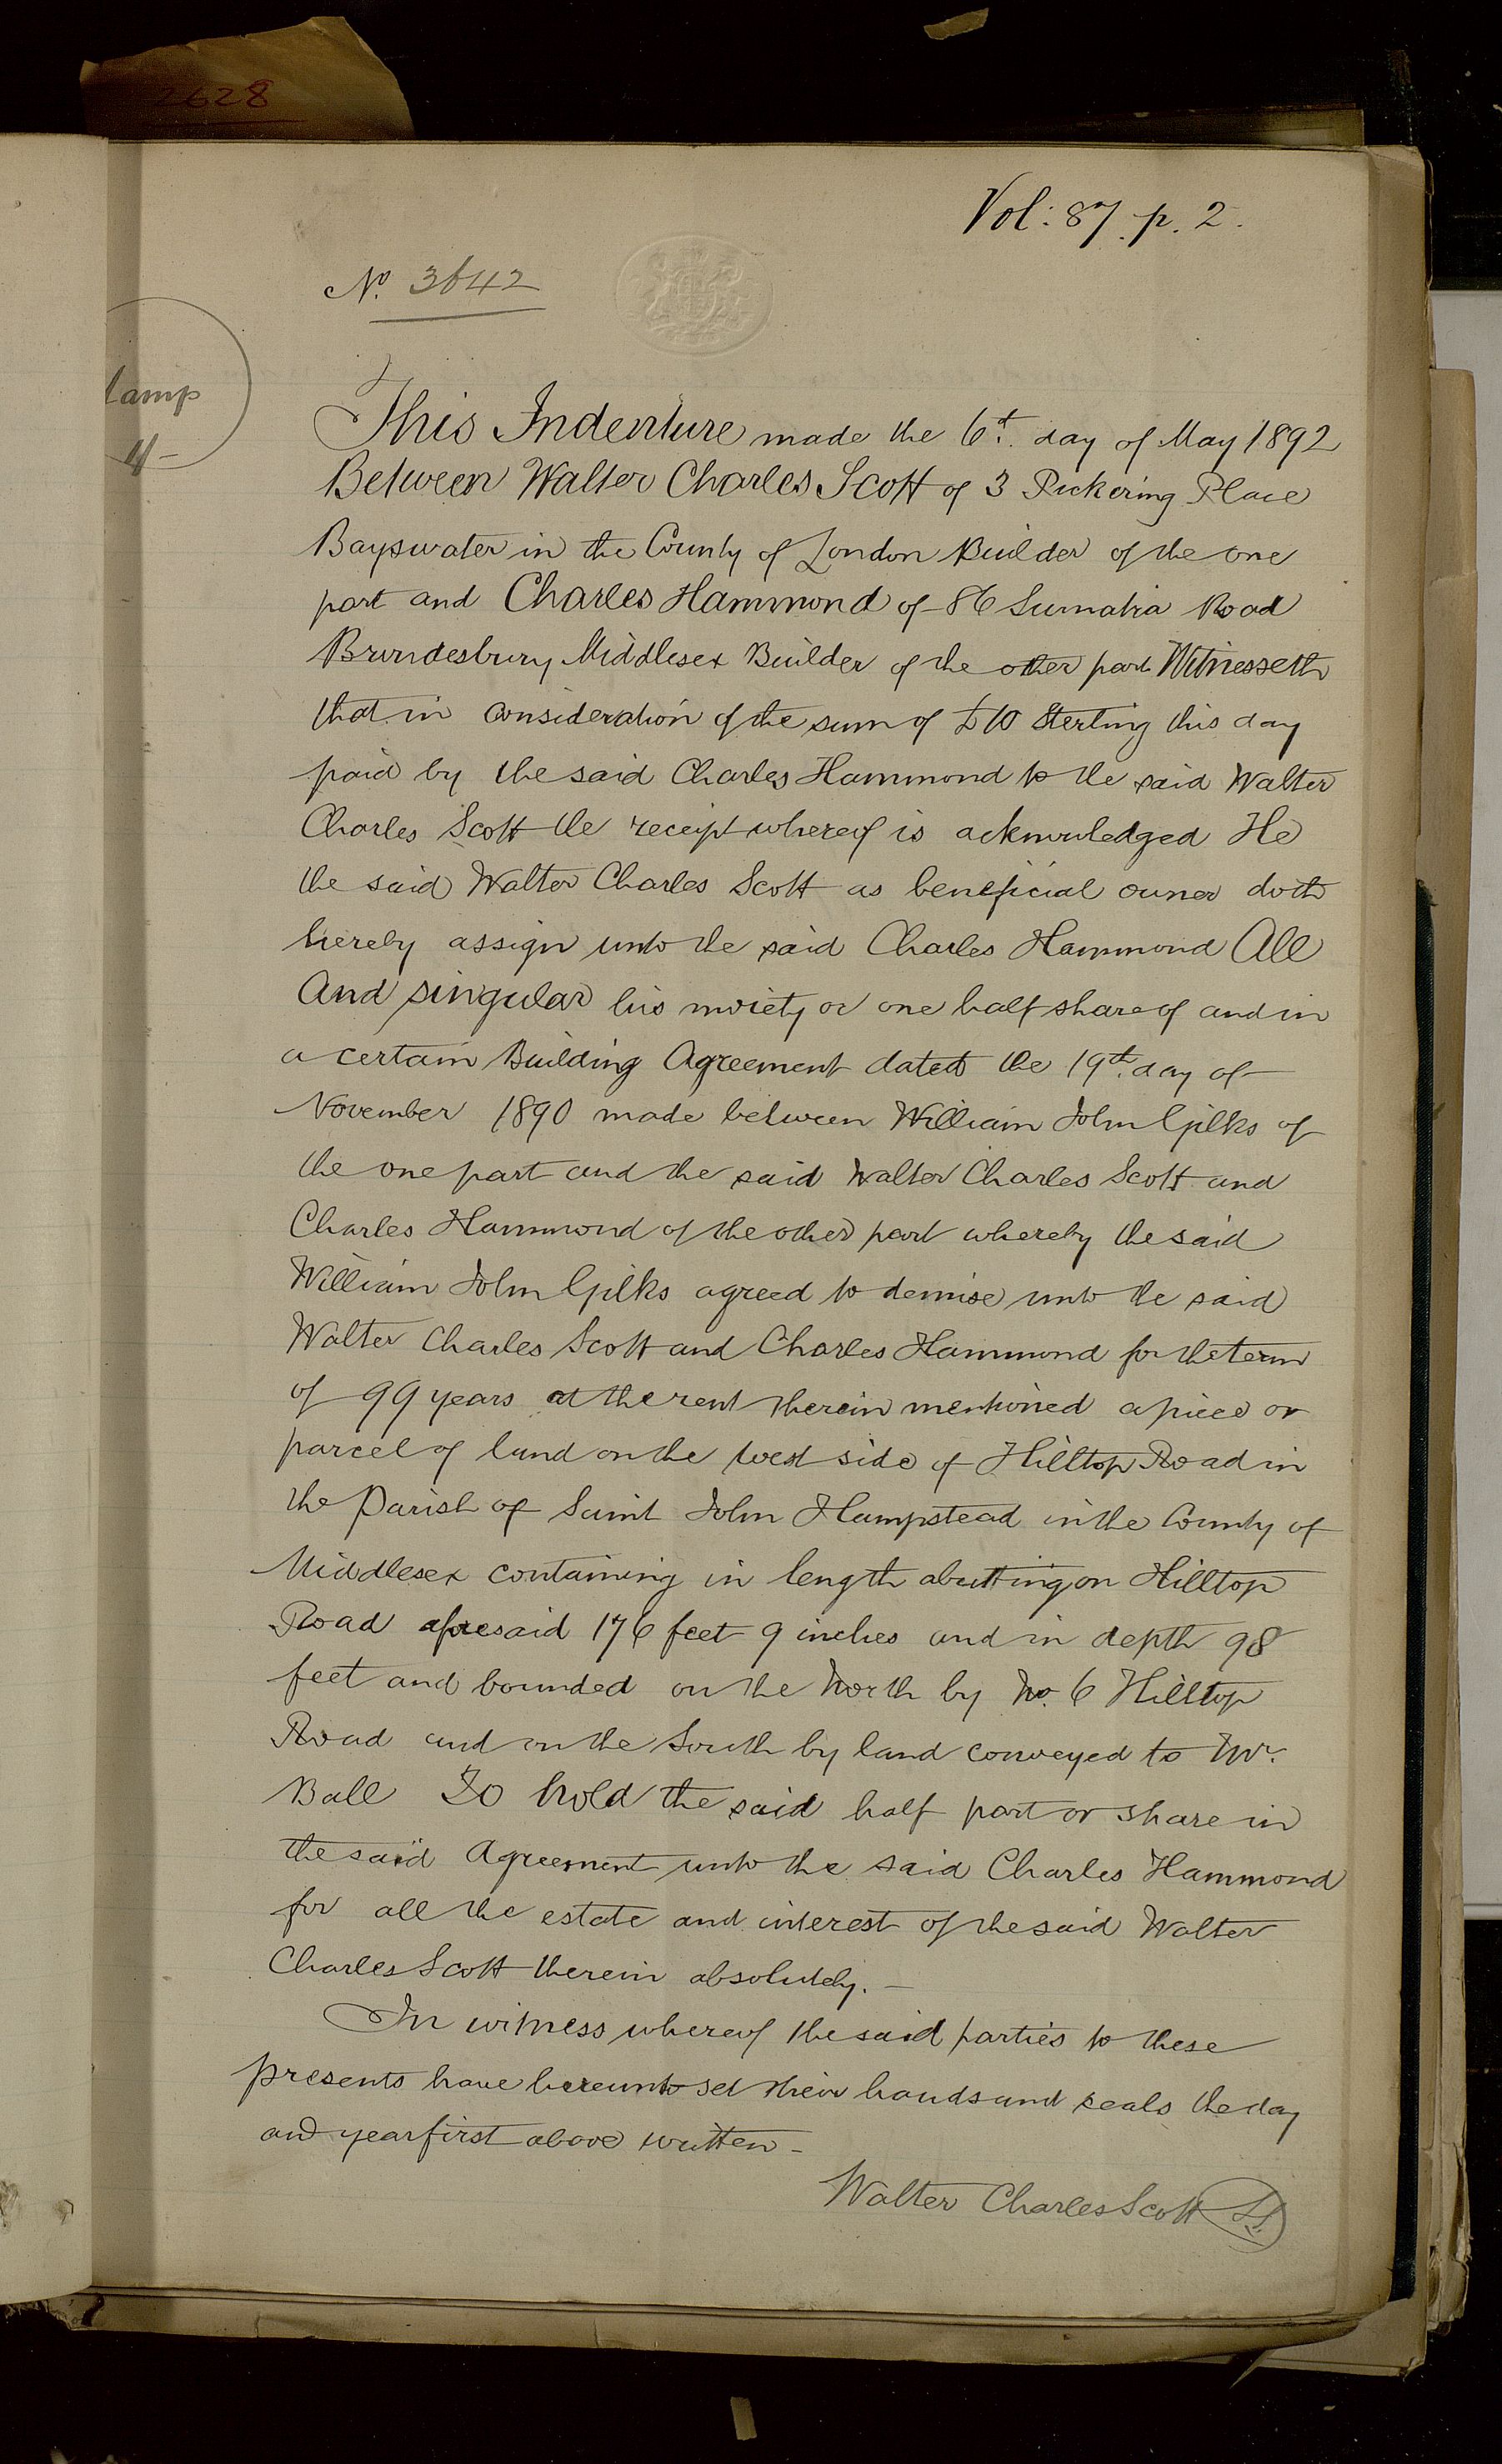 2628
Vol: 87. p. 2.
No. 3642
This Indenture made the 6th. day of May 1892
Between Walter Charles Scott of 3 Pickering Place
Bayswater in the County of London Builder of the one
part and Charles Hammond of 86 Sumatra Road
Brondesbury Middlesex Builder of the other part Witnesseth
that in consideration of the sum of £10 Sterling this day
paid by the said Charles Hammond to the said Walter
Charles Scott the receipt whereof is acknowledged He
the said Walter Charles Scott as beneficial owner doth
hereby assign unto the said Charles Hammond All
And singular his moiety or one half share of and in
a certain Building Agreement dated the 19th. day of
November 1890 made between William John Gilks of
the one part and the said Walter Charles Scott and
Charles Hammond of the other part whereby the said
William John Gilks agreed to demise unto the said
Walter Charles Scott and Charles Hammond for the term
of 99 years at the rent therein mentioned a piece or
parcel of land on the West side of Hilltop Road in
the Parish of Saint John Hampstead in the County of
Middlesex containing in length abutting on Hilltop
Road aforesaid 176 feet 9 inches and in depth 98
feet and bounded on the North by No. 6 Hilltop
Road and on the South by land conveyed to Mr.
Ball To hold the said half part or share in
the said Agreement unto the said Charles Hammond
for all the estate and interest of the said Walter
Charles Scott therein absolutely. —
In witness whereof the said parties to these
presents have hereunto set their hands and seals the day
and year first above written —
Walter Charles Scott LS